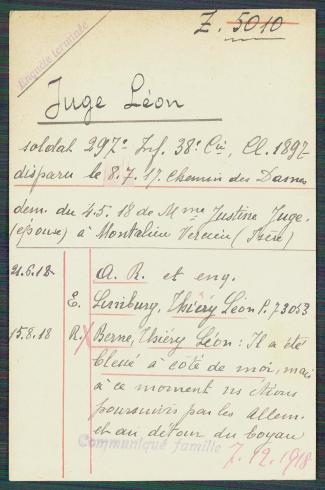 Enquête terminée
Z. 5010
Juge Léon
soldat 297e Inf. 38e Cie, Cl. 1897
disparu le 8.7.17. Chemin des Dames
dem. du 4.5.18 de Mme Justine Juge.
(épouse) à Montalieu Vercieu (Isère)
21.6.18. A. R. et enq.
E. Limburg, Thiéry Léon P. 73053
15.8.18 R. Berne, Thiéry Léon: Il a été
blessé à côté de moi, mais
à ce moment ns étions
poursuivis par les allem.
et au détour du boyau
Communiqué famille
7.12.1918